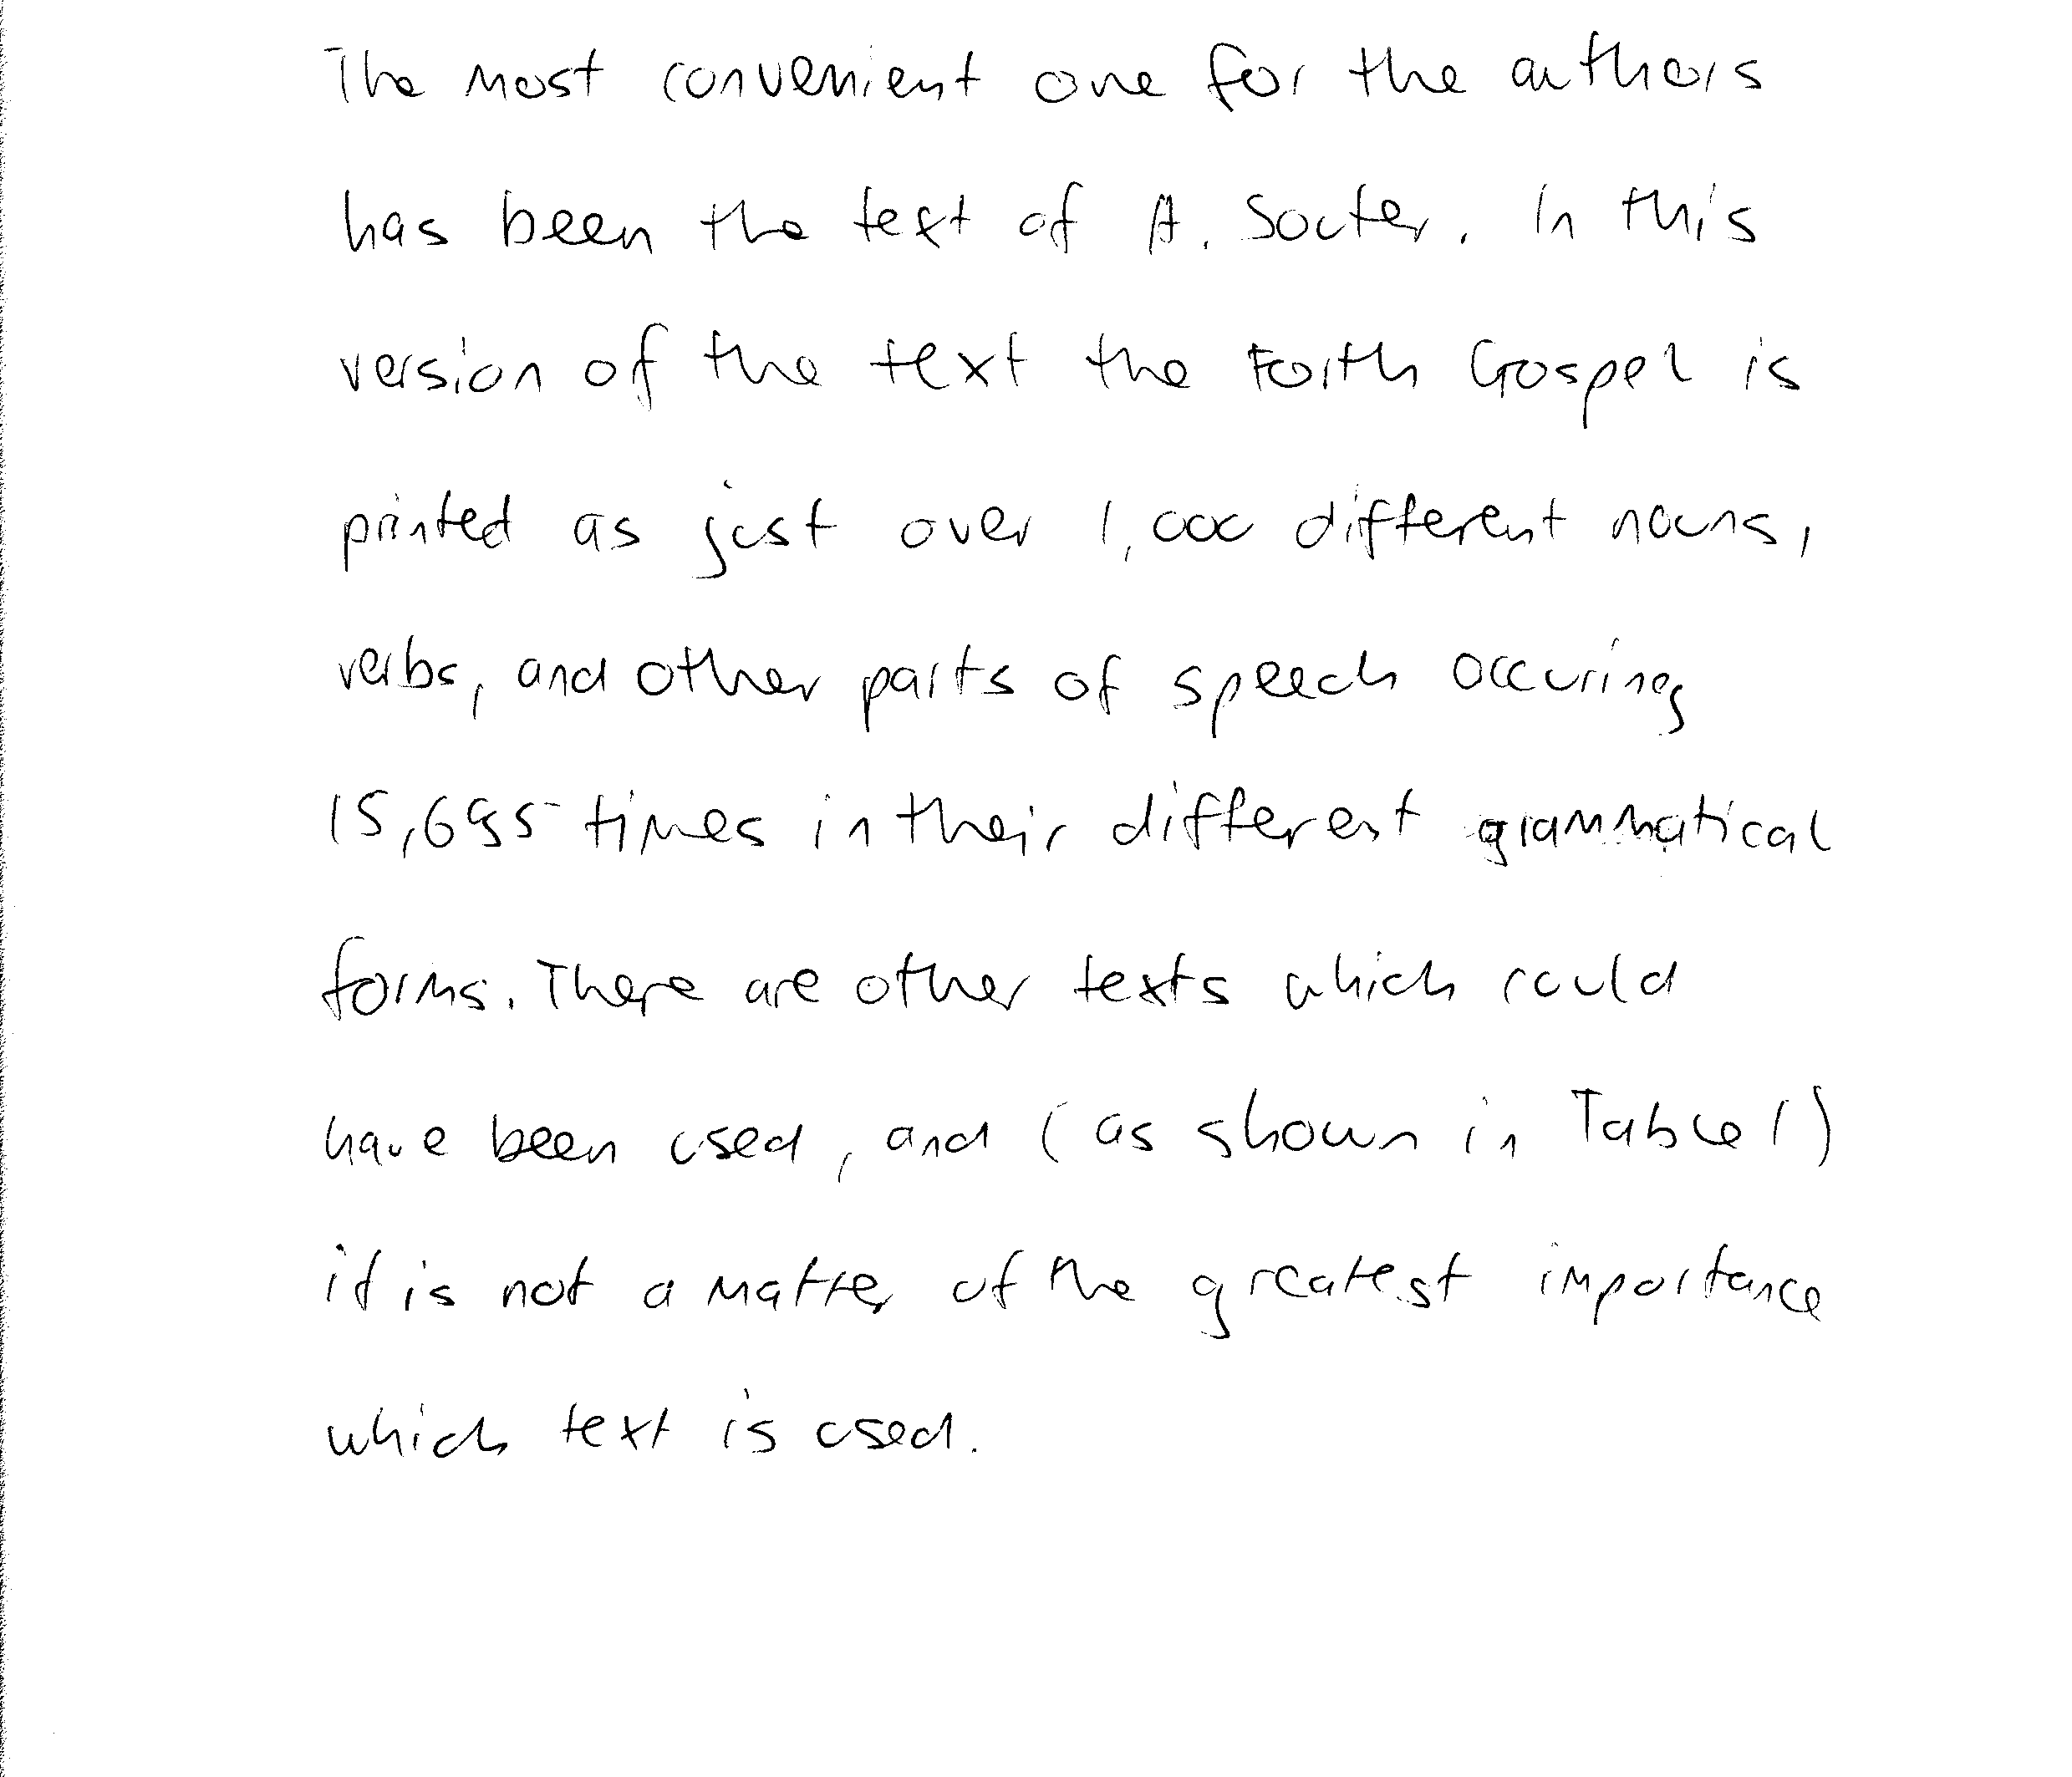 The most convenient one for the authors
has been the text of A. Souter. In this
version of the text the Forth Gospel is
printed as just over 1,000 different nouns,
verbs, and other parts of speech occuring
times in their different grammatical
forms. There are other texts which could
have been used, and (as shown in Table 1)
it is not a matter of the greatest importance
which text is used.